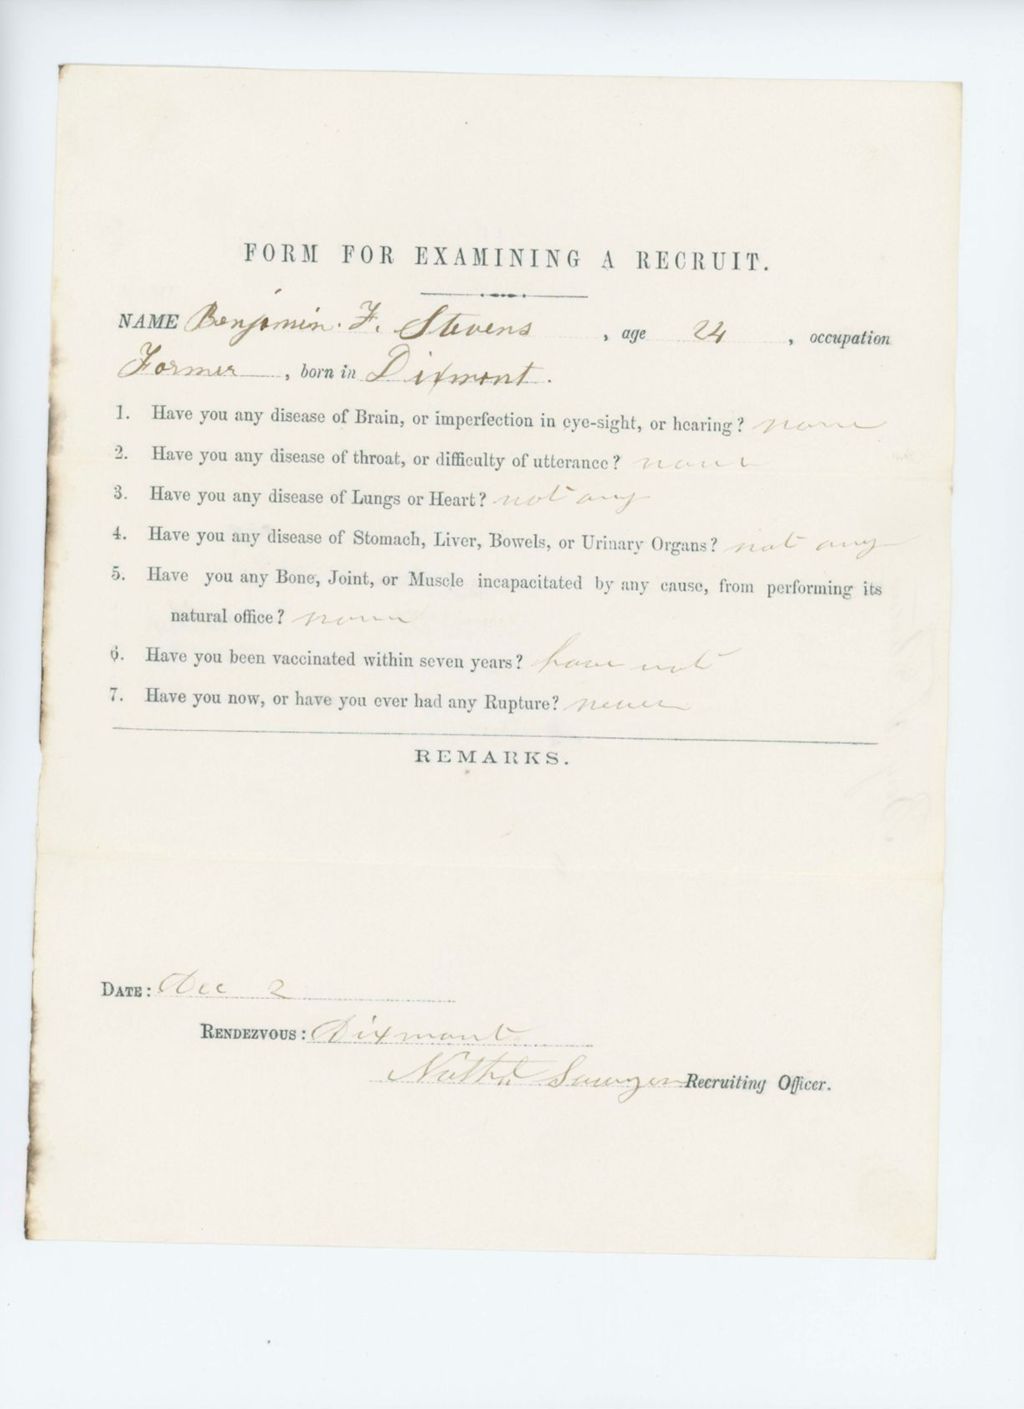 FORM FOR EXAMINING A RECRUIT.
NAME Benjamin. F. Stevens , age 24 , occupation
Farmer , born in Dixmont.
1. Have you any disease of Brain, or imperfection in eye-sight, or hearing? none
2. Have you any disease of throat, or difficulty of utterance? none
3. Have you any disease of Lungs or Heart? not any
4. Have you any disease of Stomach, Liver, Bowels, or Urinary Organs? not any
5. Have you any Bone, Joint, or Muscle incapacitated by any cause, from performing its
natural office? none
6. Have you been vaccinated within seven years? have not
7. Have you now, or have you ever had any Rupture? never
REMARKS.
DATE: Dec 2
RENDEZVOUS: Dixmont
Nathl Sawyer Recruiting Officer.